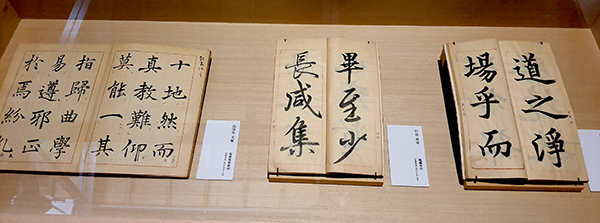 十地然而
真教難仰
莫能一其
指歸曲學
易遵邪正
於焉紛糺
畢至少
長咸集
道之淨
場乎而